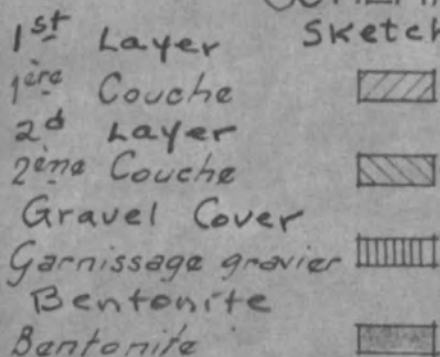 1st Layer Sketch
1ère Couche
2d Layer
2ème Couche
Gravel Cover
Garnissage gravier
Bentonite
Bentonite